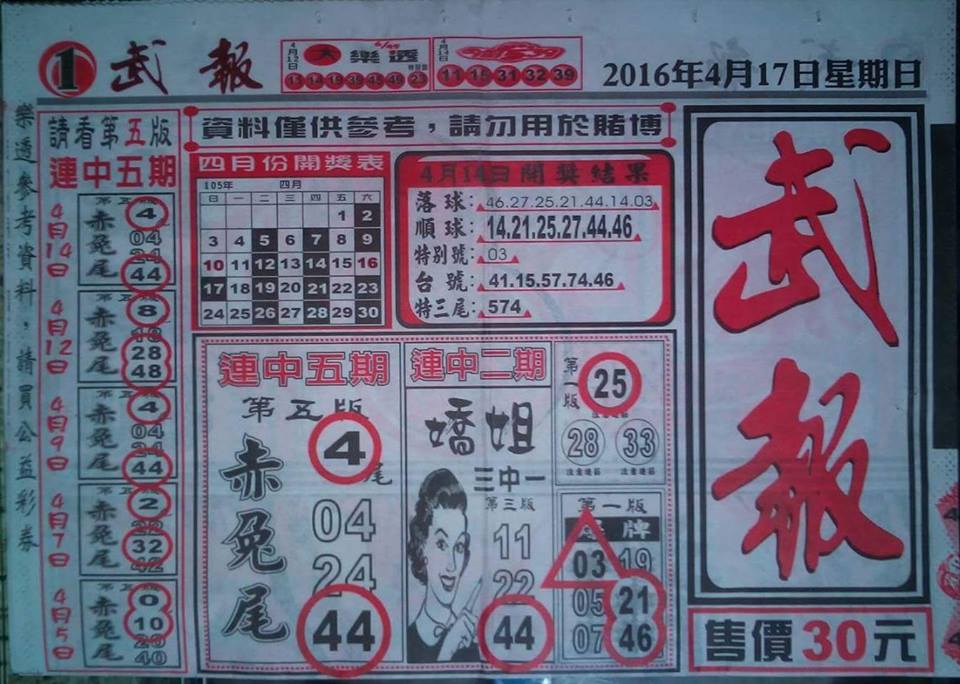 1 武報
4月12日 大樂透 6/49
13 14 19 39 48 49 23
4月14日
11 15 31 32 39
2016年4月17日星期日
樂透參考資料，請買公益彩券
請看第五版
連中五期
4月14日
第五版
赤兔尾
4
04
24
44
4月12日
第五版
赤兔尾
8
18
28
48
4月9日
第五版
赤兔尾
4
04
24
44
4月7日
第五版
赤兔尾
2
22
32
42
4月5日
第五版
赤兔尾
0
10
20
40
資料僅供參考，請勿用於賭博
四月份開獎表
105年 四月
日 一 二 三 四 五 六
1 2
3 4 5 6 7 8 9
10 11 12 13 14 15 16
17 18 19 20 21 22 23
24 25 26 27 28 29 30
4月14日開獎結果
落球：46.27.25.21.44.14.03
順球：14.21.25.27.44.46
特別號：03
台號：41.15.57.74.46
特三尾：574
連中五期
第五版
赤兔尾
4尾
04
24
44
連中二期
嬌姐
三中一
第三版
11
22
44
第一版
25
28 33
第一版
牌
03 19
05 21
07 46
武報
售價30元